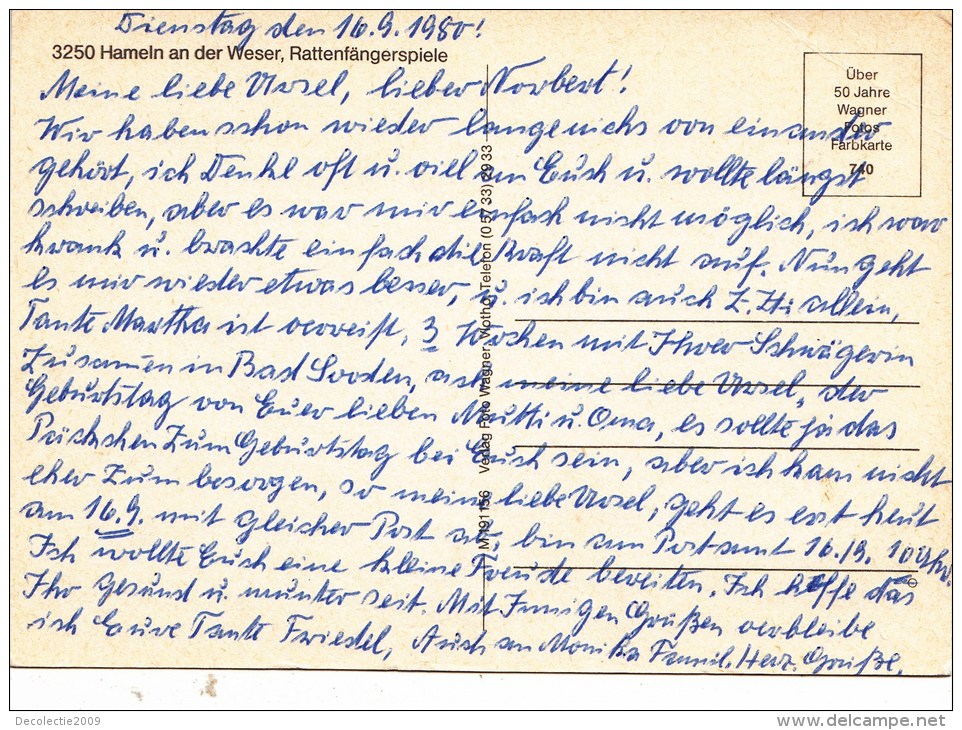 Dienstag den 16.9.1980!
3250 Hameln an der Weser, Rattenfängerspiele
Meine liebe Ursel, lieber Norbert!
Wir haben schon wieder lange nichs von einander
gehört, ich Denke oft u. viel an Euch u. wollte längst
schreiben, aber es war mir einfach nicht möglich, ich war
krank u. brachte einfach die Kraft nicht auf. Nun geht
es mir wieder etwas besser, u. ich bin auch z. Zt. allein,
Tante Martha ist verreist, 3 Wochen mit Ihrer Schwägerin
zusamen in Bad Sooden, ach meine liebe Ursel, der
Geburtstag von Euer lieben Mutti u. Oma, es sollte ja das
Päckchen zum Geburtstag bei Euch sein, aber ich kam nicht
eher zum besorgen, so meine liebe Ursel, geht es erst heut
am 16.9. mit gleicher Post ab, bin am Postamt 16./9. 10 Uhr.
Ich wollte Euch eine kleine Freude bereiten. Ich hoffe das
Ihr gesund u. munter seit. Mit Innigen Grüßen verbleibe
ich Eure Tante Friedel, Auch an Monika Famil. Herz. Grüße.
Über
50 Jahre
Wagner
Fotos
Farbkarte
740
M 191156 Verlag Foto Wagner, Vlotho, Telefon (05733) 2933
Decolectie2009
www.delcampe.net